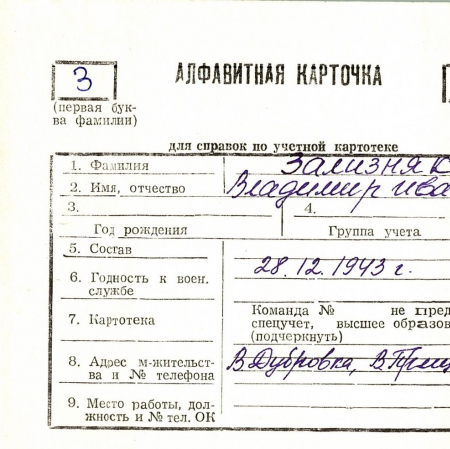 З
АЛФАВИТНАЯ КАРТОЧКА
(первая бук-
ва фамилии)
для справок по учетной картотеке
1. Фамилия Зализняк
2. Имя, отчество Владимир Ива
3. 4.
Год рождения Группа учета
5. Состав
28.12.1943 г.
6. Годность к воен.
службе
Команда № не пред
7. Картотека спецучет, высшее образов
(подчеркнуть)
8. Адрес м-жительст-
ва и № телефона В Дубровка,
9. Место работы, дол-
жность и № тел. ОК